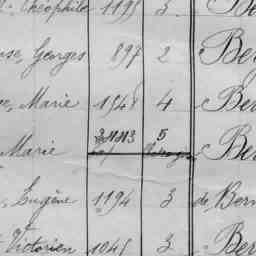 Théophile 1195 3 Be
Georges 897 2 Ber
Marie 1548 4 Ber
Marie 31113 5 Ber
Eugène 1194 3 de Bern
Victorien 1045 3 Ber